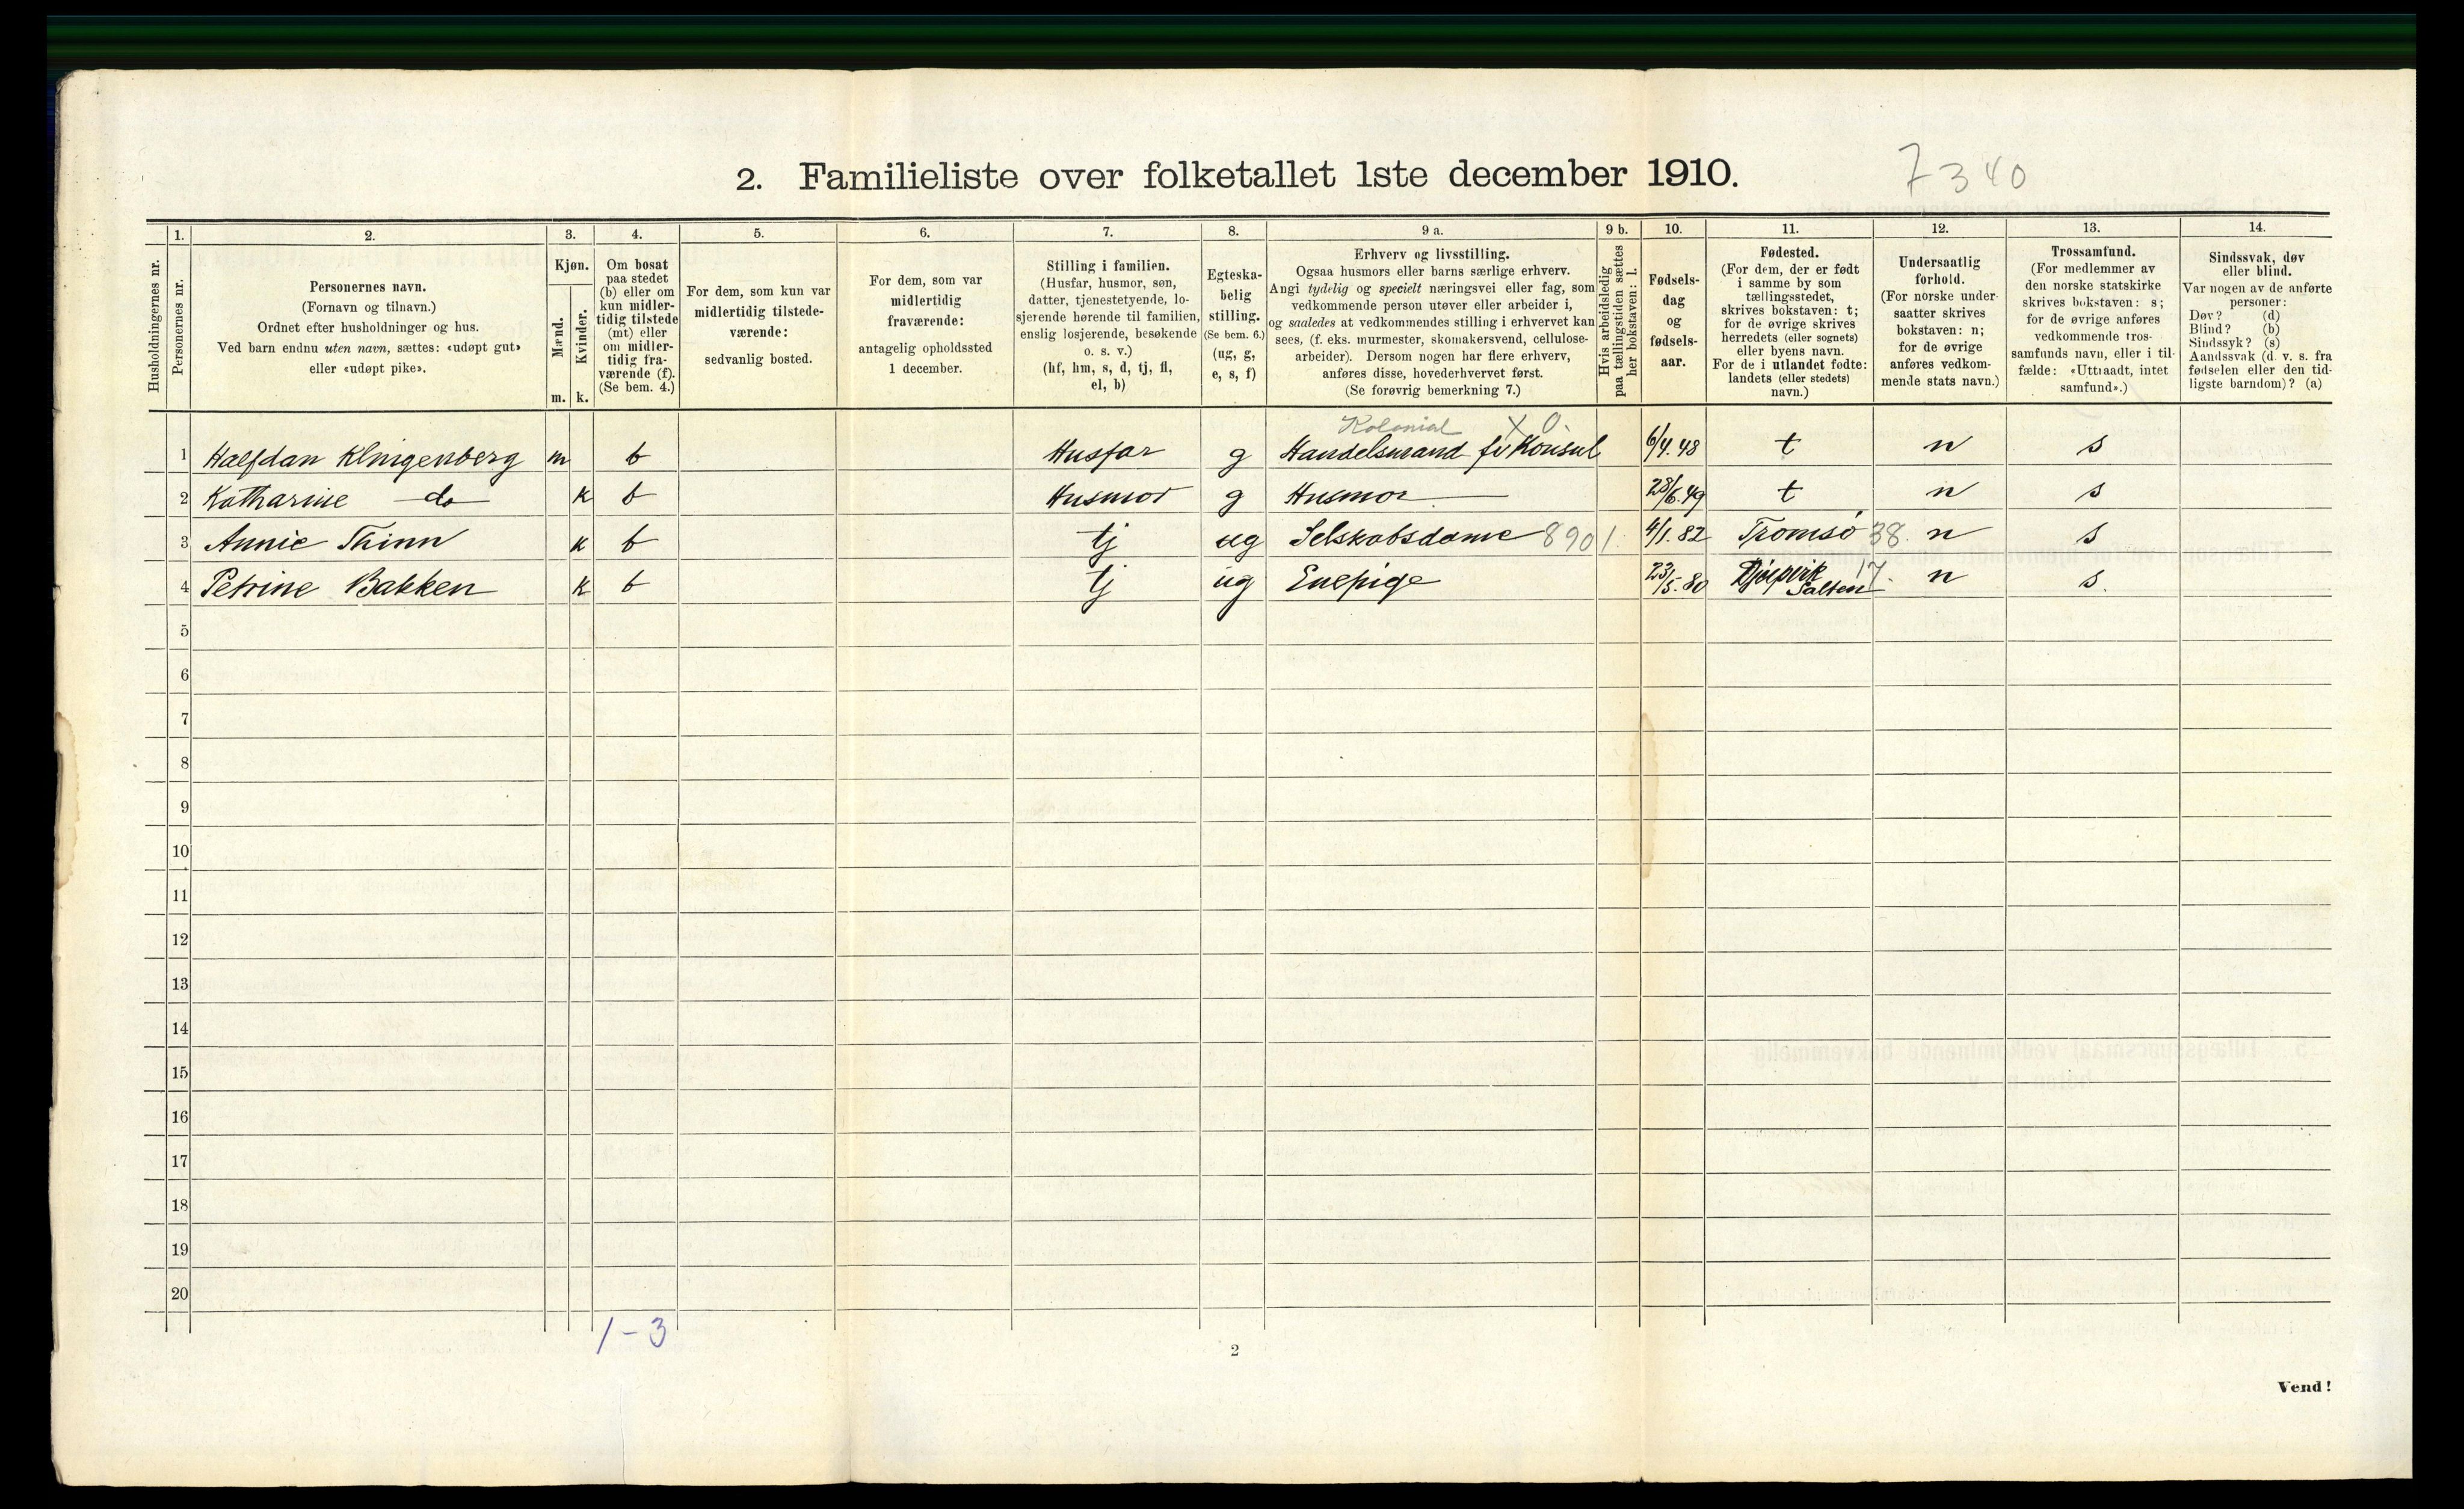 2. Familieliste over folketallet 1ste december 1910.
7340
1. 2. 3. 4. 5. 6. 7. 8. 9 a. 9 b. 10. 11. 12. 13. 14.
Husholdningernes nr.
Personernes nr.
Personernes navn.
(Fornavn og tilnavn.)
Ordnet efter husholdninger og hus.
Ved barn endnu uten navn, sættes: «udøpt gut»
eller «udøpt pike».
Kjøn.
Mænd.
Kvinder.
m. k.
Om bosat
paa stedet
(b) eller om
kun midler-
tidig tilstede
(mt) eller
om midler-
tidig fra-
værende (f).
(Se bem. 4.)
For dem, som kun var
midlertidig tilstede-
værende:
sedvanlig bosted.
For dem, som var
midlertidig
fraværende:
antagelig opholdssted
1 december.
Stilling i familien.
(Husfar, husmor, søn,
datter, tjenestetyende, lo-
sjerende hørende til familien,
enslig losjerende, besøkende
o. s. v.)
(hf, hm, s, d, tj, fl,
el, b)
Egteska-
belig
stilling.
(Se bem. 6.)
(ug, g,
e, s, f)
Erhverv og livsstilling.
Ogsaa husmors eller barns særlige erhverv.
Angi tydelig og specielt næringsvei eller fag, som
vedkommende person utøver eller arbeider i,
og saaledes at vedkommendes stilling i erhvervet kan
sees, (f. eks. murmester, skomakersvend, cellulose-
arbeider). Dersom nogen har flere erhverv,
anføres disse, hovederhvervet først.
(Se forøvrig bemerkning 7.)
Hvis arbeidsledig
paa tællingstiden sættes
her bokstaven: l.
Fødsels-
dag
og
fødsels-
aar.
Fødested.
(For dem, der er født
i samme by som
tællingsstedet,
skrives bokstaven: t;
for de øvrige skrives
herredets (eller sognets)
eller byens navn.
For de i utlandet fødte:
landets (eller stedets)
navn.)
Undersaatlig
forhold.
(For norske under-
saatter skrives
bokstaven: n;
for de øvrige
anføres vedkom-
mende stats navn.)
Trossamfund.
(For medlemmer av
den norske statskirke
skrives bokstaven: s;
for de øvrige anføres
vedkommende tros-
samfunds navn, eller i til-
fælde: «Uttraadt, intet
samfund».)
Sindssvak, døv
eller blind.
Var nogen av de anførte
personer:
Døv? (d)
Blind? (b)
Sindssyk? (s)
Aandssvak (d. v. s. fra
fødselen eller den tid-
ligste barndom)? (a)
Kolonial X 0.
1 Halfdan Klingenberg m b Husfar g Handelsmand fv Konsul 6/4.48 t n s
2 Katharine do k b Husmor g Husmor 28/6.49 t n s
3 Annie Thinn k b tj ug Selskabsdame 890 1. 4/1.82 Tromsø 38. n s
4 Petrine Bakken k b tj ug Enepige 23/5.80 17. n s.
Salten
5
6
7
8
9
10
11
12
13
14
15
16
17
18
19
20
1-3
2
Vend!